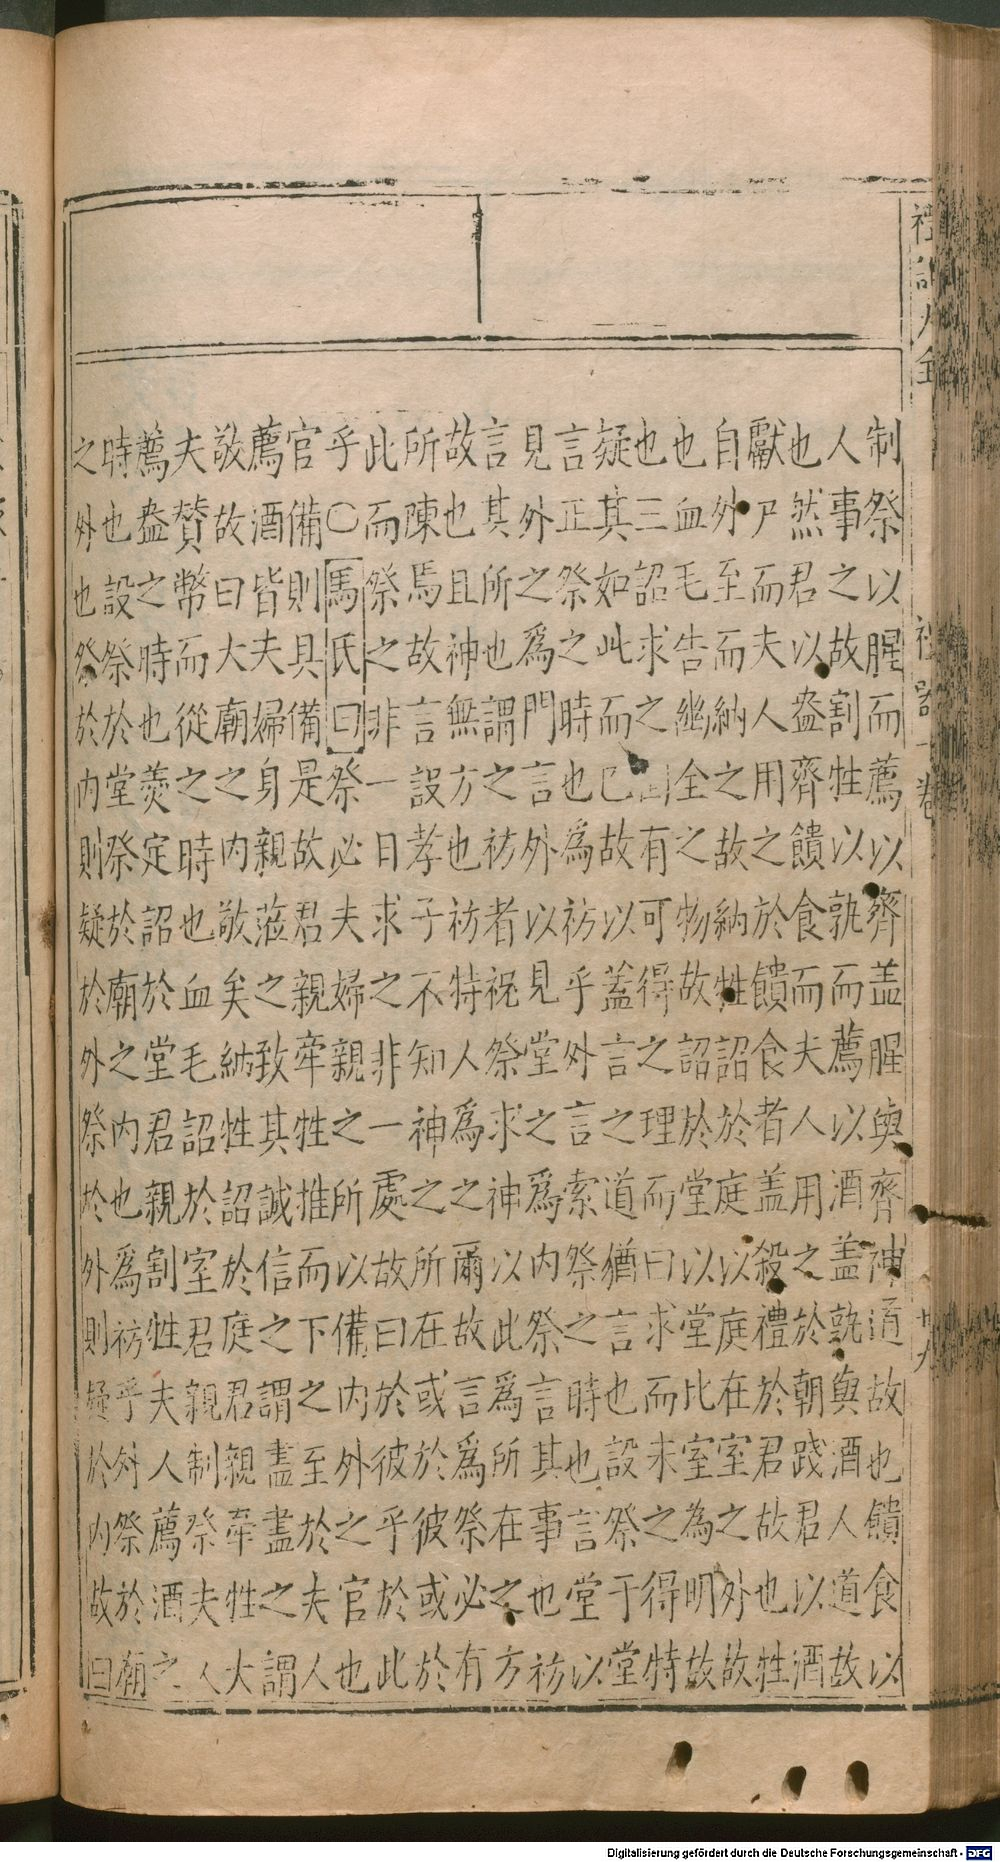 禮記大全 禮器一卷 廿九
制祭以腥而薦以齊盖腥與齊神道故也饋食以
人事之故割牲以孰而薦以酒盖孰與酒人道故
也然君以盎齊饋食而夫人用之於朝踐君以酒
獻尸而夫人用之於饋食者盖殺禮於君故也牲
自外至而納之故納牲詔於庭以庭在室之外故
也血毛告幽全之物故詔於堂以堂比室為明故
也三詔求之而有可得之理而曰求而未之得特
疑其如此而已故以蓋言之道猶言也設祭于堂
言正祭之時也為祊乎外言索祭之時也言堂以
見外之為門言外以見堂之為内祭言其事也祊
言其所也謂之祊者祝祭求神以此為所在之方
故也且神無方也祊特人為之爾故言為祭必有
所陳焉故言設孝子不知神之所在或於彼或於
此而祭之非一日求之非一處故曰於彼乎於此
乎○馬氏曰祭必夫婦親之所以備内外之官也
官備則具備是故君親牽牲推而下之至於夫人
薦酒皆夫婦身親蒞之致其誠信之謂盡盡之謂
敬故曰大廟之内敬矣納牲詔於庭君親牽牲大
夫賛幣而從之時也血毛詔於室君親制祭夫人
薦盎之時也羮定詔於堂君親割牲夫人薦酒之
時也設祭於堂祭於廟之内也為祊乎外祭於廟
之外也祭於内則疑於外祭於外則疑於内故曰
Digitalisierung gefördert durch die Deutsche Forschungsgemeinschaft - DFG